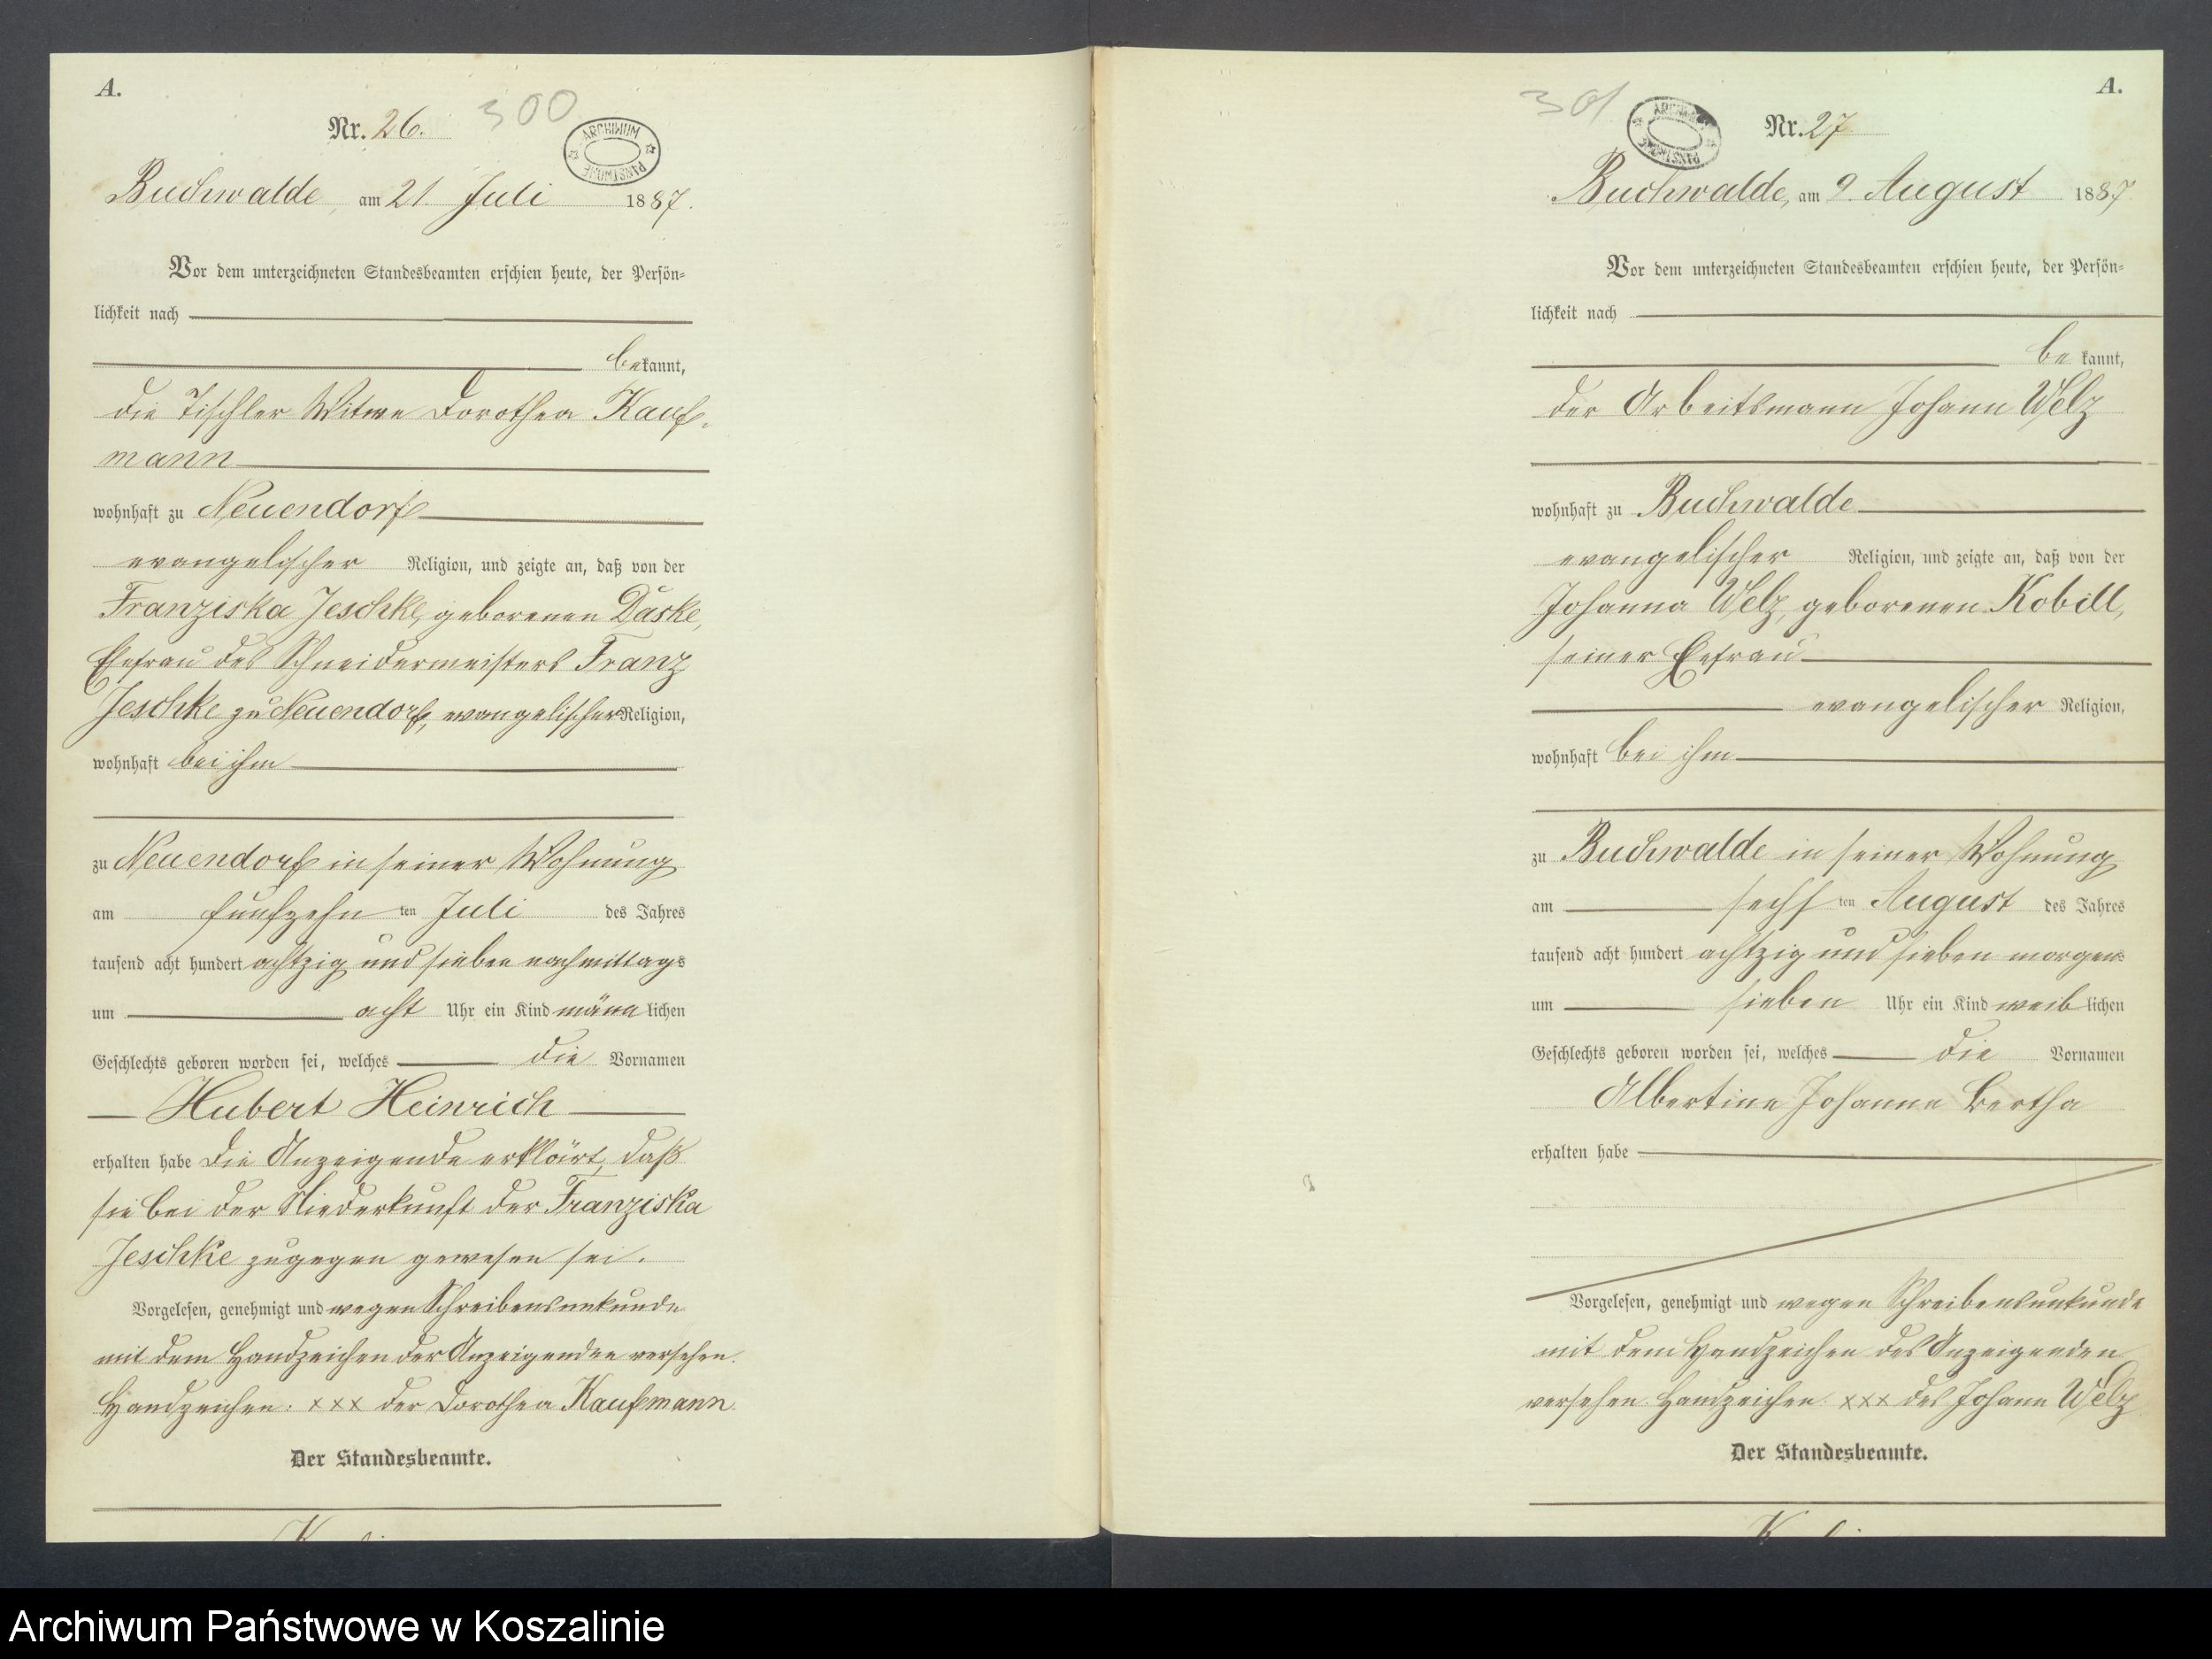 A.
Nr. 26. 300
ARCHIWUM PAŃSTWOWE
Buchwalde, am 21. Juli 1887.
Vor dem unterzeichneten Standesbeamten erschien heute, der Persön-
lichkeit nach
bekannt,
die Tischler Witwe Dorothea Kauf-
mann
wohnhaft zu Neuendorf
evangelischer Religion, und zeigte an, daß von der
Franziska Jeschke, geborenen Daske,
Ehefrau des Schneidermeisters Franz
Jeschke zu Neuendorf, evangelischer Religion,
wohnhaft bei ihm
zu Neuendorf in seiner Wohnung
am fünfzehn ten Juli des Jahres
tausend acht hundert achtzig und sieben nachmittags
um acht Uhr ein Kind männlichen
Geschlechts geboren worden sei, welches die Vornamen
Hubert Heinrich
erhalten habe Die Anzeigende erklärt, daß
sie bei der Niederkunft der Franziska
Jeschke zugegen gewesen sei.
Vorgelesen, genehmigt und wegen Schreibensunkunde
mit dem Handzeichen der Anzeigenden versehen.
Handzeichen: xxx der Dorothea Kaufmann.
Der Standesbeamte.
A.
301 Nr. 27
ARCHIWUM PAŃSTWOWE
Buchwalde, am 9. August 1887
Vor dem unterzeichneten Standesbeamten erschien heute, der Persön-
lichkeit nach
bekannt,
der Arbeitsmann Johann Welz
wohnhaft zu Buchwalde
evangelischer Religion, und zeigte an, daß von der
Johanna Welz, geborenen Kobill,
seiner Ehefrau
evangelischer Religion,
wohnhaft bei ihm
zu Buchwalde in seiner Wohnung
am sechs ten August des Jahres
tausend acht hundert achtzig und sieben morgens
um sieben Uhr ein Kind weiblichen
Geschlechts geboren worden sei, welches die Vornamen
Albertine Johanne Bertha
erhalten habe
Vorgelesen, genehmigt und wegen Schreibensunkunde
mit dem Handzeichen des Anzeigenden
versehen. Handzeichen: xxx des Johann Welz
Der Standesbeamte.
Archiwum Państwowe w Koszalinie